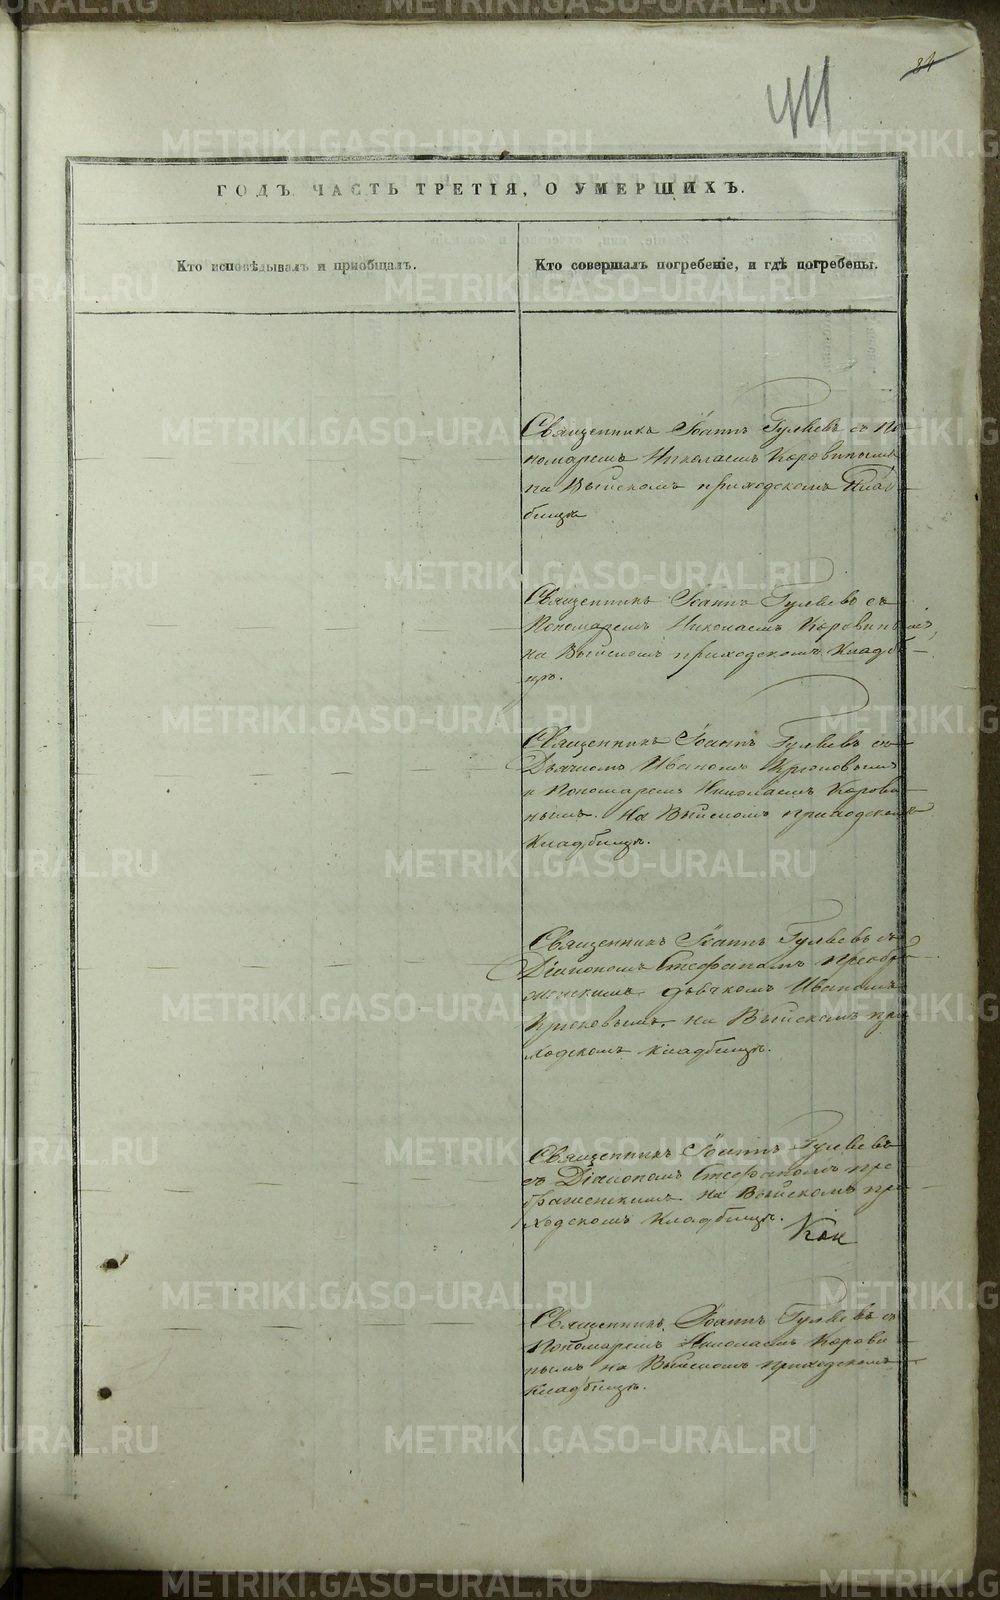 84
ГОДЪ ЧАСТЬ ТРЕТІЯ, О УМЕРШИХЪ.
Кто исповѣдывалъ и пріобщалъ.
Кто совершалъ погребеніе, и гдѣ погребены.
Священникъ Іоаннъ Гуляевъ съ По-
номаремъ Николаемъ Коровинымъ
на Выйскомъ приходскомъ Клад-
бищѣ
Священникъ Іоаннъ Гуляевъ съ
Пономаремъ Николаемъ Коровинымъ,
на Выйскомъ приходскомъ Кладби-
щѣ.
Священникъ Іоаннъ Гуляевъ съ
Дьячкомъ Иваномъ Крюковымъ
и Пономаремъ Николаемъ Корови-
нымъ. На Выйскомъ приходскомъ
Кладбищѣ.
Священникъ Іоаннъ Гуляевъ съ
Діакономъ Стефаномъ Преобра-
женскимъ дьячкомъ Иваномъ
Крюковымъ. на Выйскомъ при-
ходскомъ кладбищѣ.
Священникъ Іоаннъ Гуляевъ
съ Діакономъ Стефаномъ прео-
браженскимъ на Выйскомъ при-
ходскомъ Кладбищѣ.
Священникъ Іоаннъ Гуляевъ съ
Пономаремъ Николаемъ Корови-
нымъ на Выйскомъ приходскомъ
кладбищѣ.
METRIKI.GASO-URAL.RU